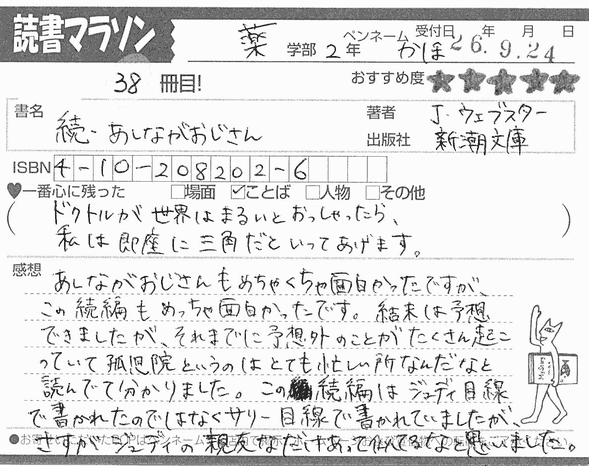 読書マラソン
薬 学部 2年 ペンネーム かほ 受付日 年 月 日 26.9.24
38 冊目! おすすめ度 ★★★★★
書名 続・あしながおじさん 著者 J.ウェブスター
出版社 新潮文庫
ISBN 4-10-208202-6
♥一番心に残った □場面 ☑ことば □人物 □その他
(ドクトルが世界はまるいとおっしゃったら、
私は即座に三角だといってあげます。)
感想
あしながおじさんもめちゃくちゃ面白かったですが、
この続編もめっちゃ面白かったです。結末は予想
できましたが、それまでに予想外のことがたくさん起こ
っていて孤児院というのはとても忙しい所なんだなと
読んでて分かりました。この続編はジュディ目線
で書かれたのではなくサリー目線で書かれていましたが、
さすがジュディの親友なだけあって似てるなと思いました。